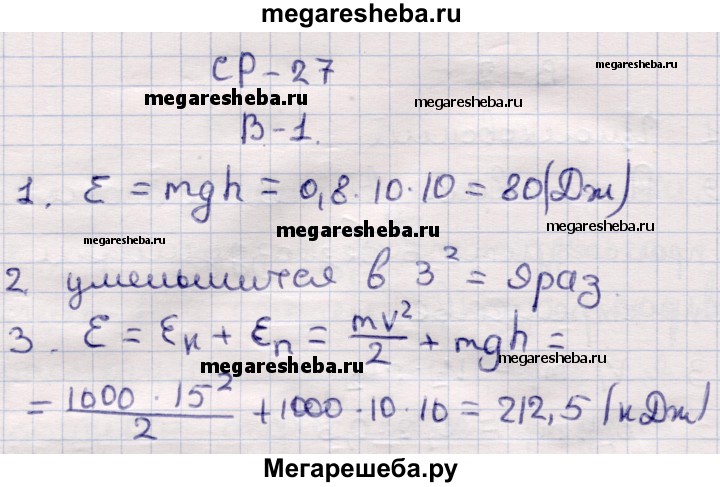 megaresheba.ru
СР-27
megaresheba.ru
megaresheba.ru
megaresheba.ru
В-1.
1. E = mgh = 0,8·10·10 = 80(Дж)
megaresheba.ru
megaresheba.ru
megaresheba.ru
2. уменьшится в 3² = 9раз.
3. E = Eк + Eп = mv²/2 + mgh =
megaresheba.ru
megaresheba.ru
= 1000·15²/2 + 1000·10·10 = 212,5 (кДж)
Мегарешеба.ру